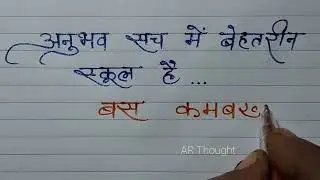 अनुभव सच में बेहतरीन
स्कूल है ...
बस कमबख
AR Thought